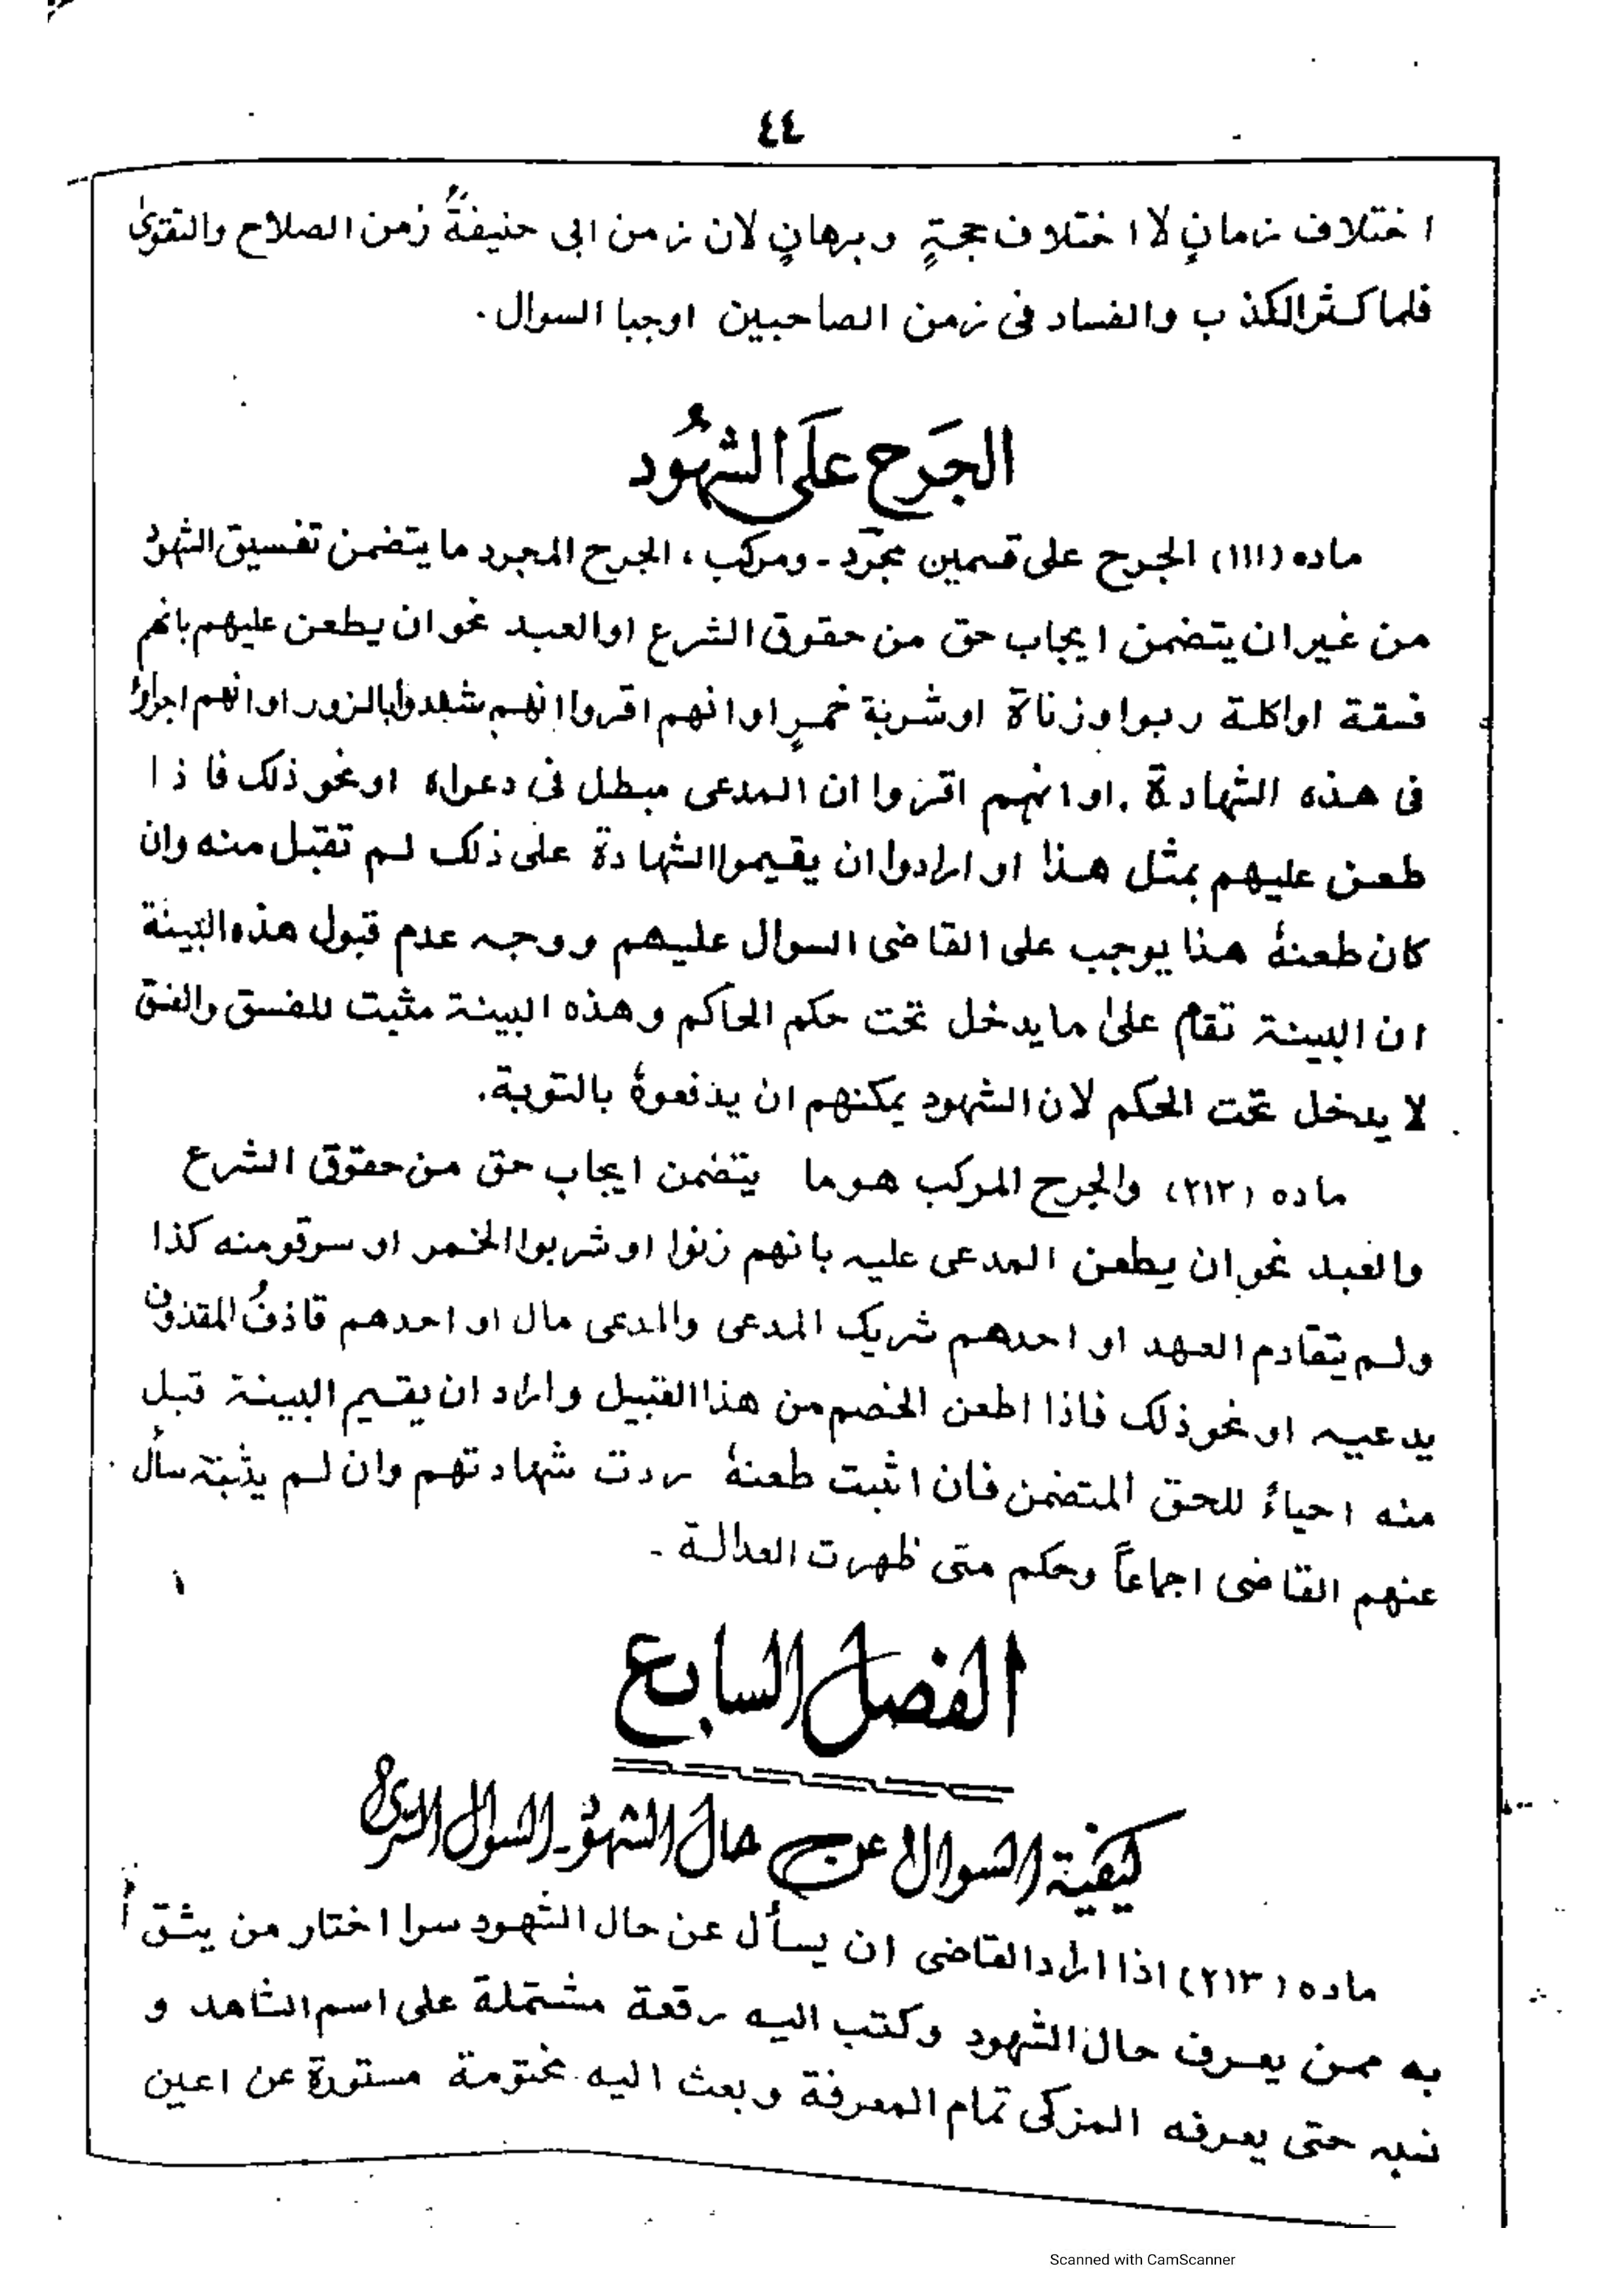 ٤٤
اختلاف زمانٍ لا اختلاف حجةٍ وبرهانٍ لان زمن ابی حنیفةؒ زمن الصلاح والتقویٰ
فلما کثر الکذب والفساد فی زمن الصاحبین اوجبا السوال.
الجَرح علَی الشهُود
ماده (١١١) الجرح علی قسمین مجرّد - ومرکب، الجرح المجرد ما یتضمن تفسیق الشهود
من غیر ان یتضمن ایجاب حق من حقوق الشرع او العبد نحو ان یطعن علیهم بانهم
فسقة او اکلة ربوا وزناة او شربة خمرٍ او انهم اقروا انهم شهدوا بالزور او انهم اجراؤ
فی هذه الشهادة .او انهم اقروا ان المدعی مبطل فی دعواه او نحو ذلک فاذا
طعن علیهم بمثل هذا او ارادوا ان یقیموا الشهادة علی ذلک لم تقبل منه وان
کان طعنهٗ هذا یوجب علی القاضی السوال علیهم ووجه عدم قبول هذه البینة
ان البینة تقام علیٰ ما یدخل تحت حکم الحاکم وهذه البینة مثبت للفسق والفسق
لا یدخل تحت الحکم لان الشهود یمکنهم ان یدفعوهٗ بالتوبة.
ماده (٢١٢) والجرح المرکب هو ما یتضمن ایجاب حق من حقوق الشرع
والعبد نحو ان یطعن المدعی علیه بانهم زنوا او شربوا الخمر او سرقو منه کذا
ولم یتقادم العهد او احدهم شریک المدعی والمدعی مال او احدهم قاذفُ المقذوف
یدعیه او نحو ذلک فاذا اطعن الخصم من هذا القبیل واراد ان یقیم البینة قبل
منه احیاءً للحق المتضمن فان اثبت طعنهٗ ردت شهادتهم وان لم یثبته سأل
عنهم القاضی اجماعاً وحکم متی ظهرت العدالة -
الفصل السابع
کیفیة السوال عن حال الشهود - السوال السری
ماده (٢١٣) اذا اراد القاضی ان یسأل عن حال الشهود سرا اختار من یثق
به ممن یعرف حال الشهود وکتب الیه رقعة مشتملة علی اسم الشاهد و
نسبه حتی یعرفه المزکی تمام المعرفة وبعث الیه مختومة مستورة عن اعین
Scanned with CamScanner